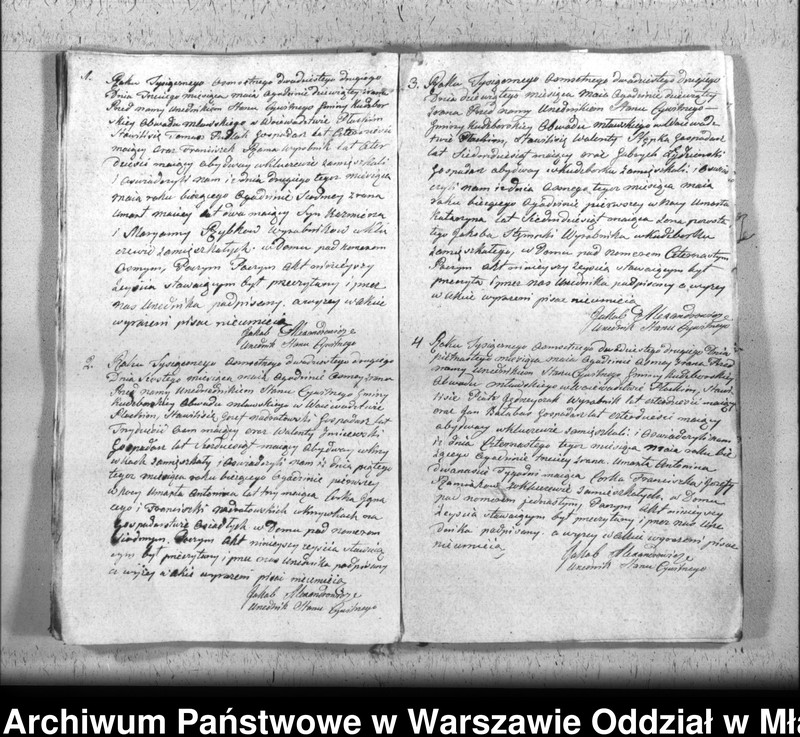 1. Roku Tysięcznego Osmsetnego dwudziestego drugiego
Dnia Trzeciego miesiąca maia Ogodzinie dziewiątey zrana
Przed namy Urzednikiem Stanu Cywilnego Gminy Kuczbor
skiey Obwodu mławskiego w Woiewodztwie Płockim
Stawilisię Tomasz Gospodarz lat Czterdzieści
maiący Oraz Franciszek Wyrobnik lat Czter
dzieści maiący abydway wkluczewie zamięszkali
i Oswiadczyli nam iż dnia drugiego tegoz miesiąca
maia roku bieżącego Ogodzinie Siodmey zrana
Umarł Maciey lat dwa maiący Syn Kazmierza
i Maryanny Szybkow Wyrobnikow wklu
czewie Zamięszkałych, w Domu pod numerem
Osmym, Poczym Akt ninieyszy
Zeyscia stawaiącym był przeczytany i przez
nas Urzednika podpisany, a wyzey w akcie
wyrażeni pisac nieumieią
Jakob Alexandrowicz
Urzednik Stanu Cywilnego
2. Roku Tysięcznego Osmsetnego dwudziestego drugiego
Dnia Szostego miesiąca maia Ogodzinie Osmey zrana
Przed namy Urzednikiem Stanu Cywilnego Gminy
Kuczborskiey Obwodu mławskiego w Woiewodztwie
Płockim, Stawilisię Jozef Gospodarz lat
maiący oraz Walenty
Gospodarz lat maiący Abydway
zamięszkały i Oswiadczyli nam iż dnia piątego
tegoz miesiąca roku bieżącego Ogodzinie pierwszey
w Nocy Umarła Antonina lat trzy maiąca Corka
i Franciszki na
Gospodarstwie Osiadłych w Domu pod numerem
Siodmym, Poczym Akt ninieyszy zeyscia stawaią
cym był przeczytany i przez nas Urzednika podpisany
a wyżey w akcie wyrażeni pisać nieumieią
Jakob Alexandrowicz
Urzednik Stanu Cywilnego
3. Roku Tysięcznego Osmsetnego dwudziestego drugiego
Dnia Dziewiątego miesiąca Maia Ogodzinie dziewiątey
zrana Przed namy Urzednikiem Stanu Cywilnego
Gminy Kuczborskiey Obwodu mławskiego w Woiewodz
twie Płockim, Stawilisię Walenty Gospodarz
lat Siedmdziesiąt maiący oraz Gabrych
Gospodarz abydway w Kuczborku zamięszkali i Oswiad
czyli nam iż dnia Osmego tegoz miesiąca maia
roku bieżącego Ogodzinie pierwszey w Nocy Umarła
Katarzyna lat Siedmdziesiąt maiąca Zona pozosta
łego Jakoba Wyrobnika w Kuczborku
Zamięszkałego, w Domu pod numerem Czternastym
Poczym Akt ninieyszy zeyscia stawaiącym był
przeczyta i przez nas Urzednika podpisany a wyzey
w Akcie wyrażeni pisac nieumieią
Jakob Alexandrowicz
Urzednik Stanu Cywilnego
4 Roku Tysięcznego Osmsetnego dwudziestego drugiego Dnia
piętnastego miesiąca maia Ogodzinie Osmey zrana Przed
namy Urzednikiem Stanu Cywilnego Gminy Kuczborskiey
Obwodu mławskiego w Woiewodztwie Płockim, Stawi
lisie Piotr Wyrobnik lat czterdzieści maiący
oraz Jan Gospodarz lat czterdzieści maiący
abydway w kluczewie zamięszkali i Oswiadczyli nam
iż dnia Czternastego tegoz miesiąca maia roku bie
żącego Ogodzinie trzeciey zrana, Umarła Antonina
dwanaście Tygodni maiąca Corka Franciszka i Jozefy
wkluczewie zamięszkałych, w Domu
pod numerem jednastym Poczym Akt ninieyszy
Zeyscia stawaiącym był przeczytany i przez nas Urze
dnika podpisany, a wyzey w Akcie wyrażeni pisac
nieumieią
Jakob Alexandrowicz
Urzednik Stanu Cywilnego
Archiwum Państwowe w Warszawie Oddział w Mła